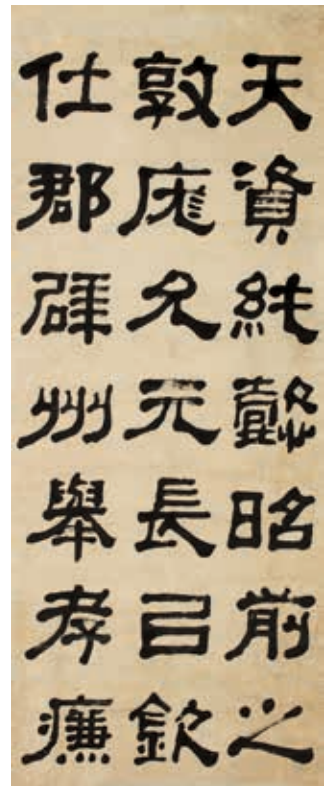 天資純懿昭前之
敦庬允元長㠯欽
仕郡辟州舉孝廉